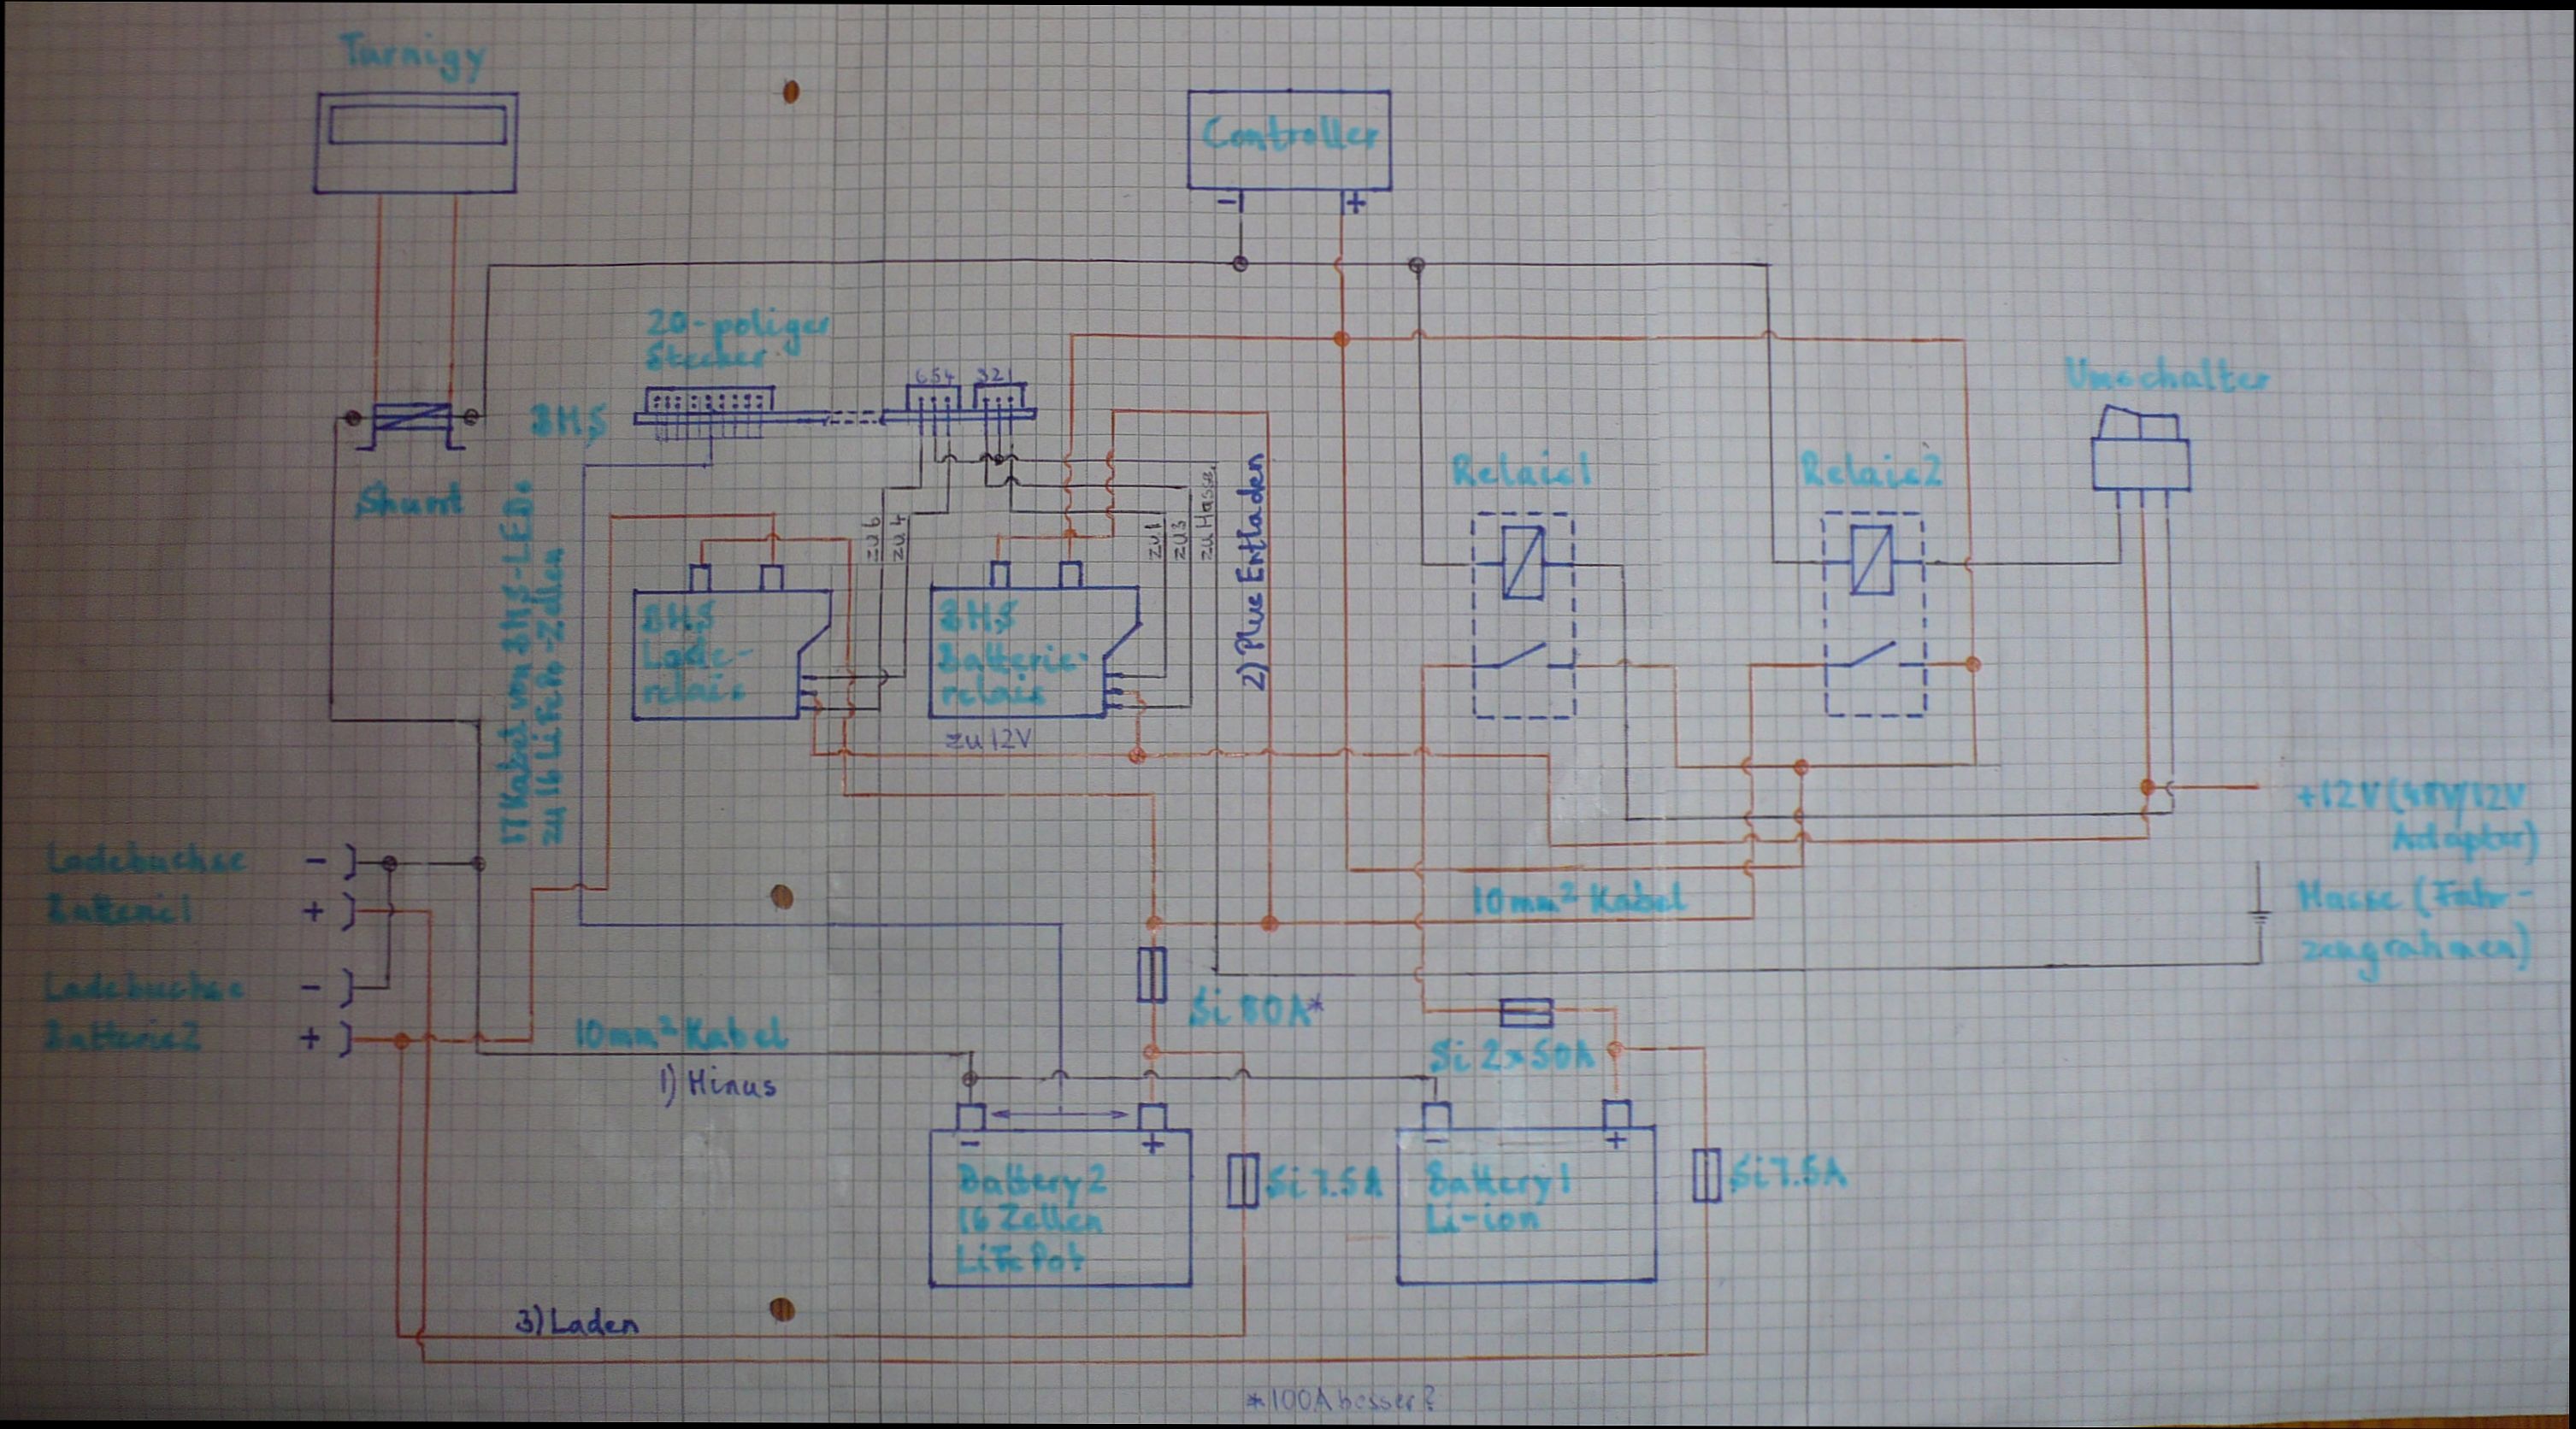 Turnigy
Controller
- +
20-poliger
Stecker
6 5 4 3 2 1
BMS
Shunt
Umschalter
Relais1
Relais2
17 Kabel von BMS-LED.
zu 16 LiFePo-Zellen
zu 6
zu 4
zu 1
zu 3
zu Masse
2) Plus Entladen
BMS
Lade-
relais
BMS
Batterie-
relais
zu 12V
+12V (48V/12V
Adapter)
Masse (Fahr-
zeugrahmen)
Ladebuchse -
Batterie1 +
Ladebuchse -
Batterie2 +
10mm² Kabel
10mm² Kabel
1) Minus
Si 80A*
Si 2x50A
- +
Battery2
16 Zellen
LiFePo4
Si 7.5A
- +
Battery1
Li-ion
Si 7.5A
3) Laden
*100A besser?